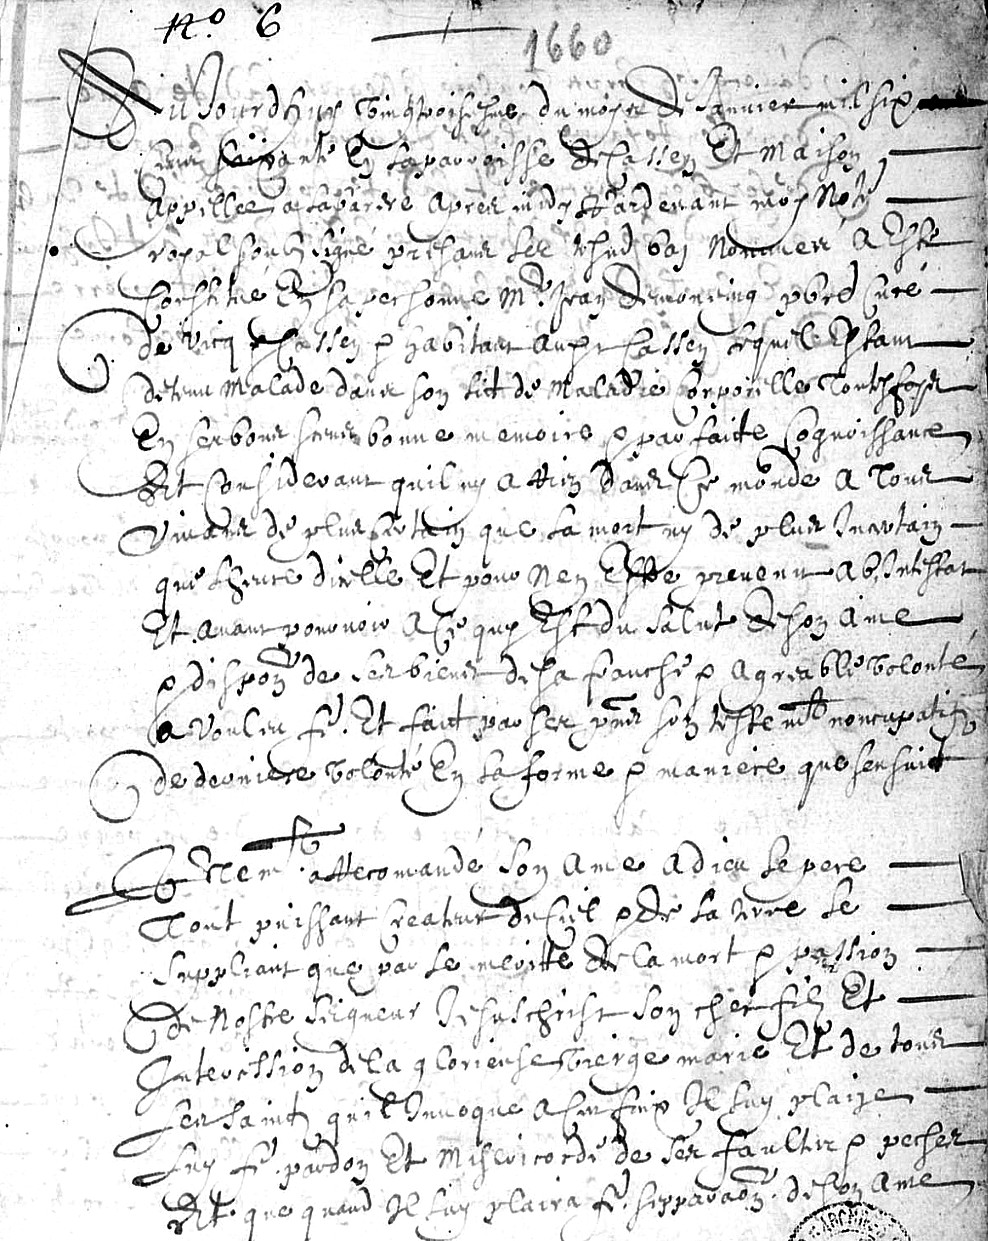 No. 6
1660
Aujourdhuy vingtroisiesme du moys de Janvier mil six
cens soixante En la parroisse de Cassen Et Maison
appellee a Labarrere apres midy Pardevant moy Nore
royal soubz signé presans les tesmd bas Nommes a Esté
Constitué En sa personne Me Jean Demoncing pbre curé
de Vicq & Cassen & habitant aupt Cassen lequel Estant
detenu Malade dans son lit de Maladie Corporelle Toutesfoys
En ses bons sens bonne memoire & parfaite Cognoissance
Et Considerant quil ny a Rien dans Ce monde a Tous
vivans de plus Certain que la mort ny de plus Incertain
que lheure dicelle Et pour Nen Estre prevenu abIntestat
Et avant pourvoir a Ce quy Est du salut de son ame
& dispon de ses biens de sa franche & agreable volonté
a voulu fe. Et fait par ses pntes son testemt noncupatif
de derniere volonté En la forme & maniere que sensuit
Premt. a Recomandé son ame a dieu le pere
Tout puissant Createur de Ciel & de la terre le
suppliant que par le merite de la mort & passion
de Nostre seigneur Jesuschrist son cher filz Et
Intercession de la glorieuse vierge marie Et de tous
ses saintz quil Invoque a ces fins Il luy plaize
luy fe. pardon Et Misericorde de ses faultes & peches
Et que quand Il luy plaira fe. sepparaon. de son ame
ARCHIVES